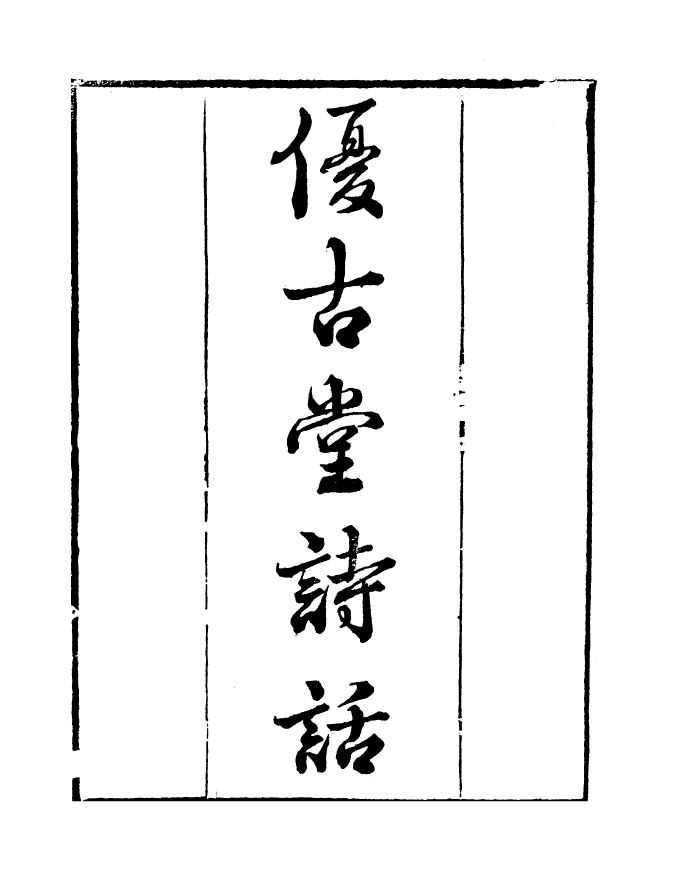 優古堂詩話